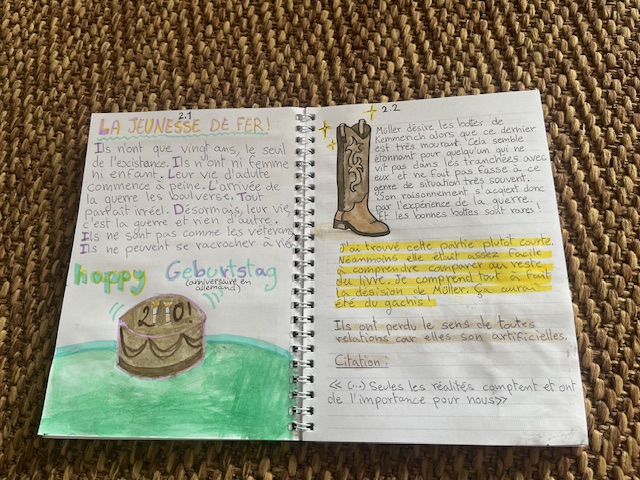 2.1
LA JEUNESSE DE FER!
Ils n'ont que vingt ans, le seuil
de l'existance. Ils n'ont ni femme
ni enfant. Leur vie d'adulte
commence à peine. L'arrivée de
la guerre les boulverse. Tout
parfait irréel. Désormais, leur vie,
c'est la guerre et rien d'autre.
Ils ne sont pas comme les vétérans
Ils ne peuvent se racrocher à rien
happy Geburtstag
(anniversaire en
allemand)
20!
2.2
Müller désire les bottes de
Kemmerich alors que ce dernier
est très mourant. Cela semble
étonnant pour quelqu'un qui ne
vit pas dans les tranchées avec
eux et ne fait pas fasse à ce
genre de situation très souvent.
Son raisonnement s'aqiezt donc
par l'expérience de la guerre.
Et les bonnes bottes sont rares!
J'ai trouvé cette partie plutot courte.
Néanmoins elle était assez facile
à comprendre comparer au reste
du livre. Je comprend tout à fait
la désision de Müller. Ça aurai
été du gachis!
Ils ont perdu le sens de toutes
relations car elles son artificielles.
Citation :
<< (...) Seules les réalités comptent et ont
de l'importance pour nous>>